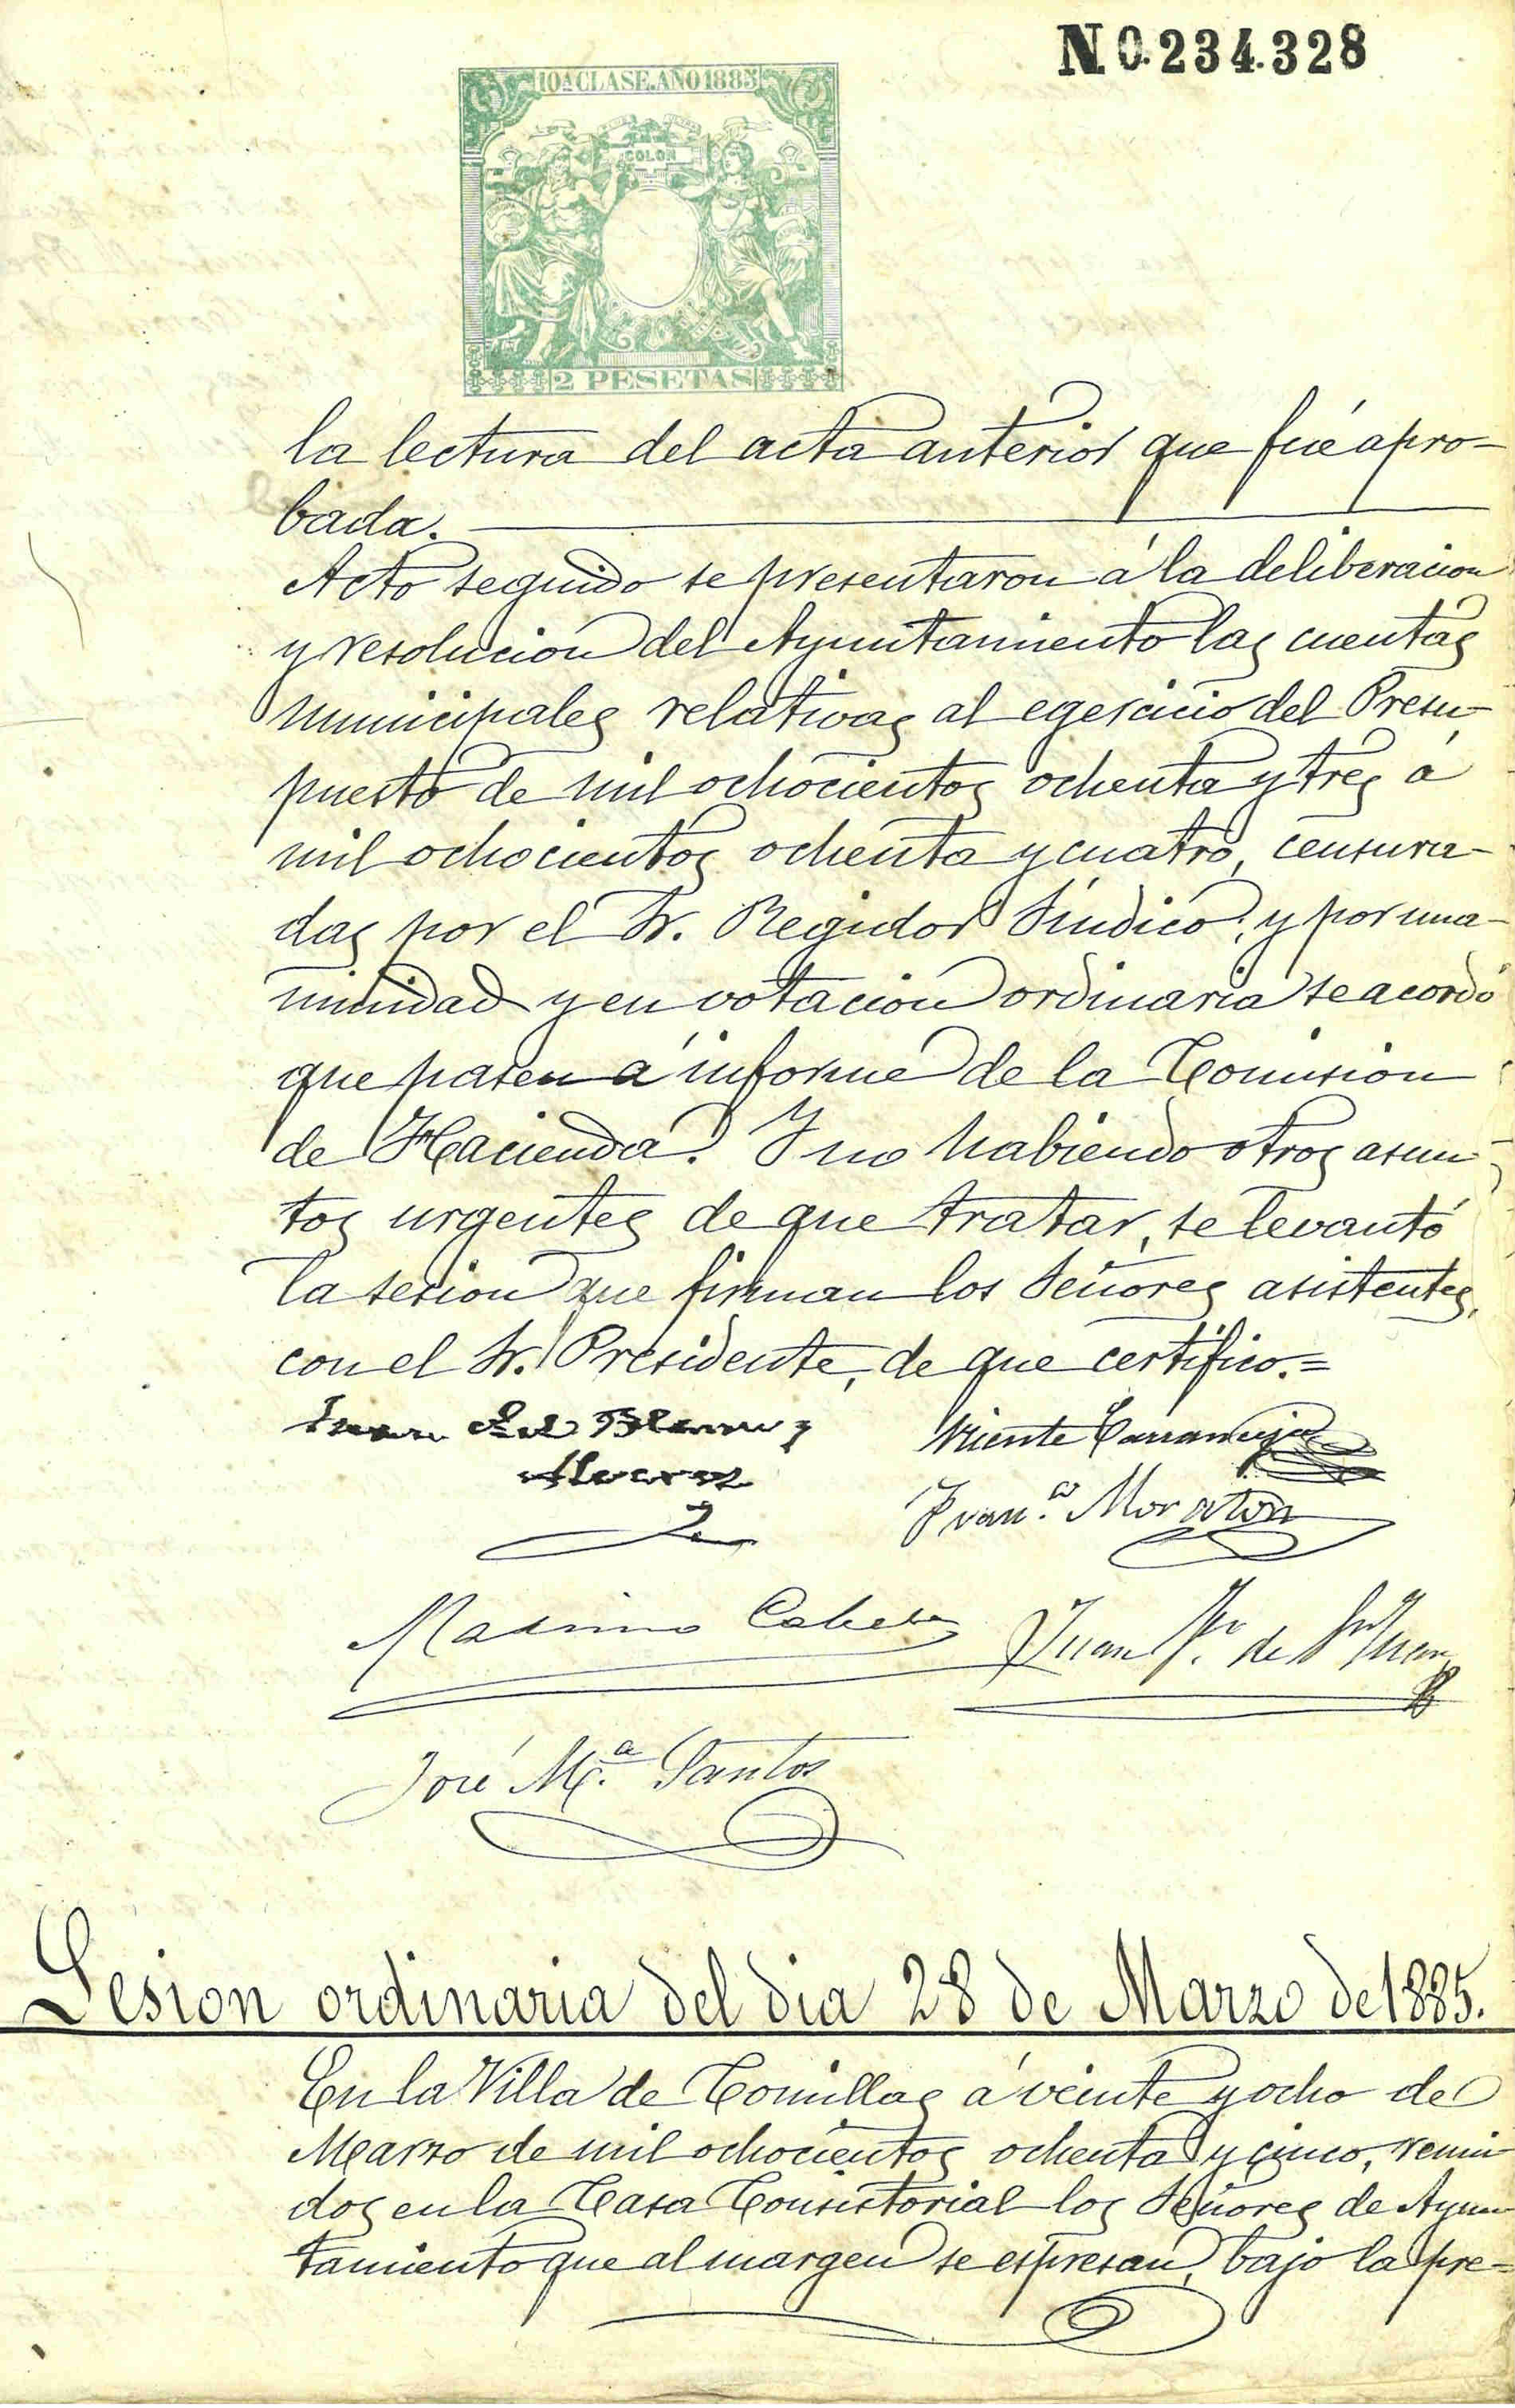 N.0.234.328
10ª CLASE. AÑO 1885
COLON
2 PESETAS
la lectura del acta anterior que fué apro-
bada.
Acto seguido se presentaron á la deliberacion
y resolucion del Ayuntamiento las cuentas
municipales relativas al egercicio del Presu-
puesto de mil ochocientos ochenta y tres á
mil ochocientos ochenta y cuatro, censura-
das por el Sr. Regidor Síndico; y por una-
nimidad y en votacion ordinaria se acordó
que pasen á informe de la Comision
de Hacienda. Y no habiendo otros asun-
tos urgentes de que tratar, se levantó
la sesion que firman los Señores asistentes,
con el Sr. Presidente, de que certifico.=
Vicente Carranceja
Franco. Moraton
Maximo Cabeza Juan Fr. de Sn Juan
José Mª. Santos
Sesion ordinaria del dia 28 de Marzo de 1885.
En la Villa de Comillas á veinte y ocho de
Marzo de mil ochocientos ochenta y cinco, reuni
dos en la Casa Consistorial los Señores de Ayun-
tamiento que al margen se espresan, bajo la pre=